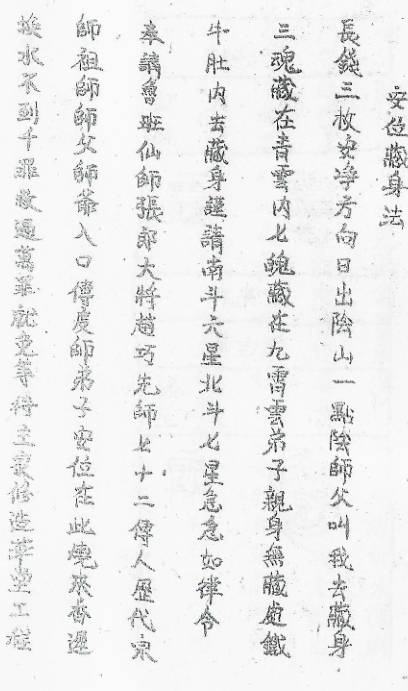 安位藏身法
長錢三枚安淨方向日出陰山一點陰師父叫我去藏身
三魂藏在青雲內七魄藏在九霄雲弟子親身無藏處鐵
牛肚內去藏身謹請南斗六星北斗七星急急如律令
奉請魯班仙師張郎大將趙巧先師七十二傳人歷代宗
師祖師師父師爺入口傳度師弟子安位在此燒來香遲
挨水不到千罪赦過萬罪就免等待主家修造華堂工程